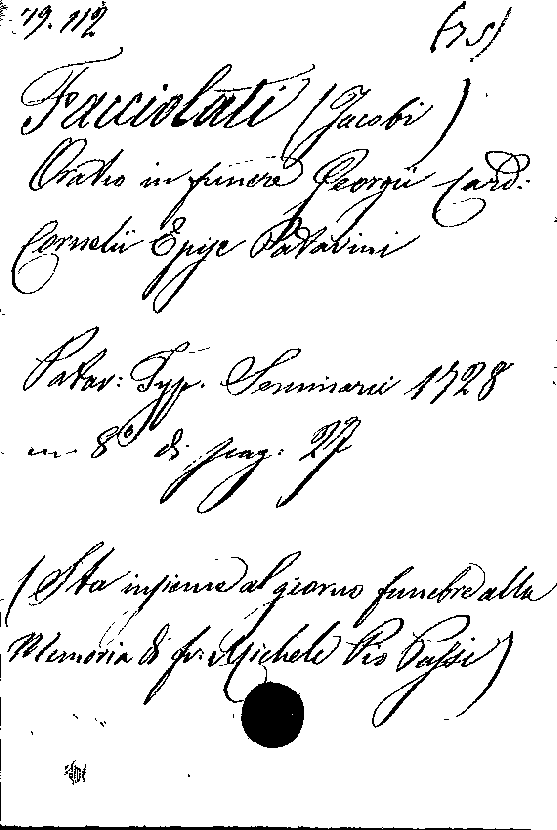 79. 112 (75)
Facciolati (Jacobi)
Oratio in funere Georgii Card:
Cornelii Episc Patavini
Patav: Typ. Seminarii 1728
in 8° di pag: 27
(Sta insieme al giorno funebre alla
Memoria di fr. Michele Pio Passi)